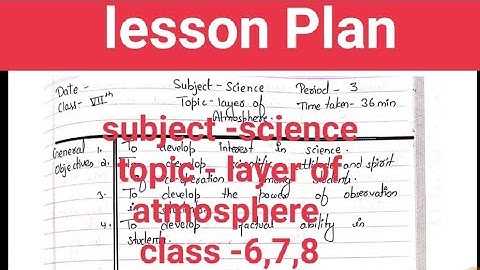 lesson Plan
Date - Subject - Science Period - 3
Class - VIIth Topic - layer of Time taken - 36 min
Atmosphere.
subject -science
topic - layer of
atmosphere
class -6,7,8
General 1. To develop interest in science.
Objectives 2. To develop scientific attitude and spirit
of co-operation among students.
3. To develop the power of observation
in
4. To develop factual ability in
students.